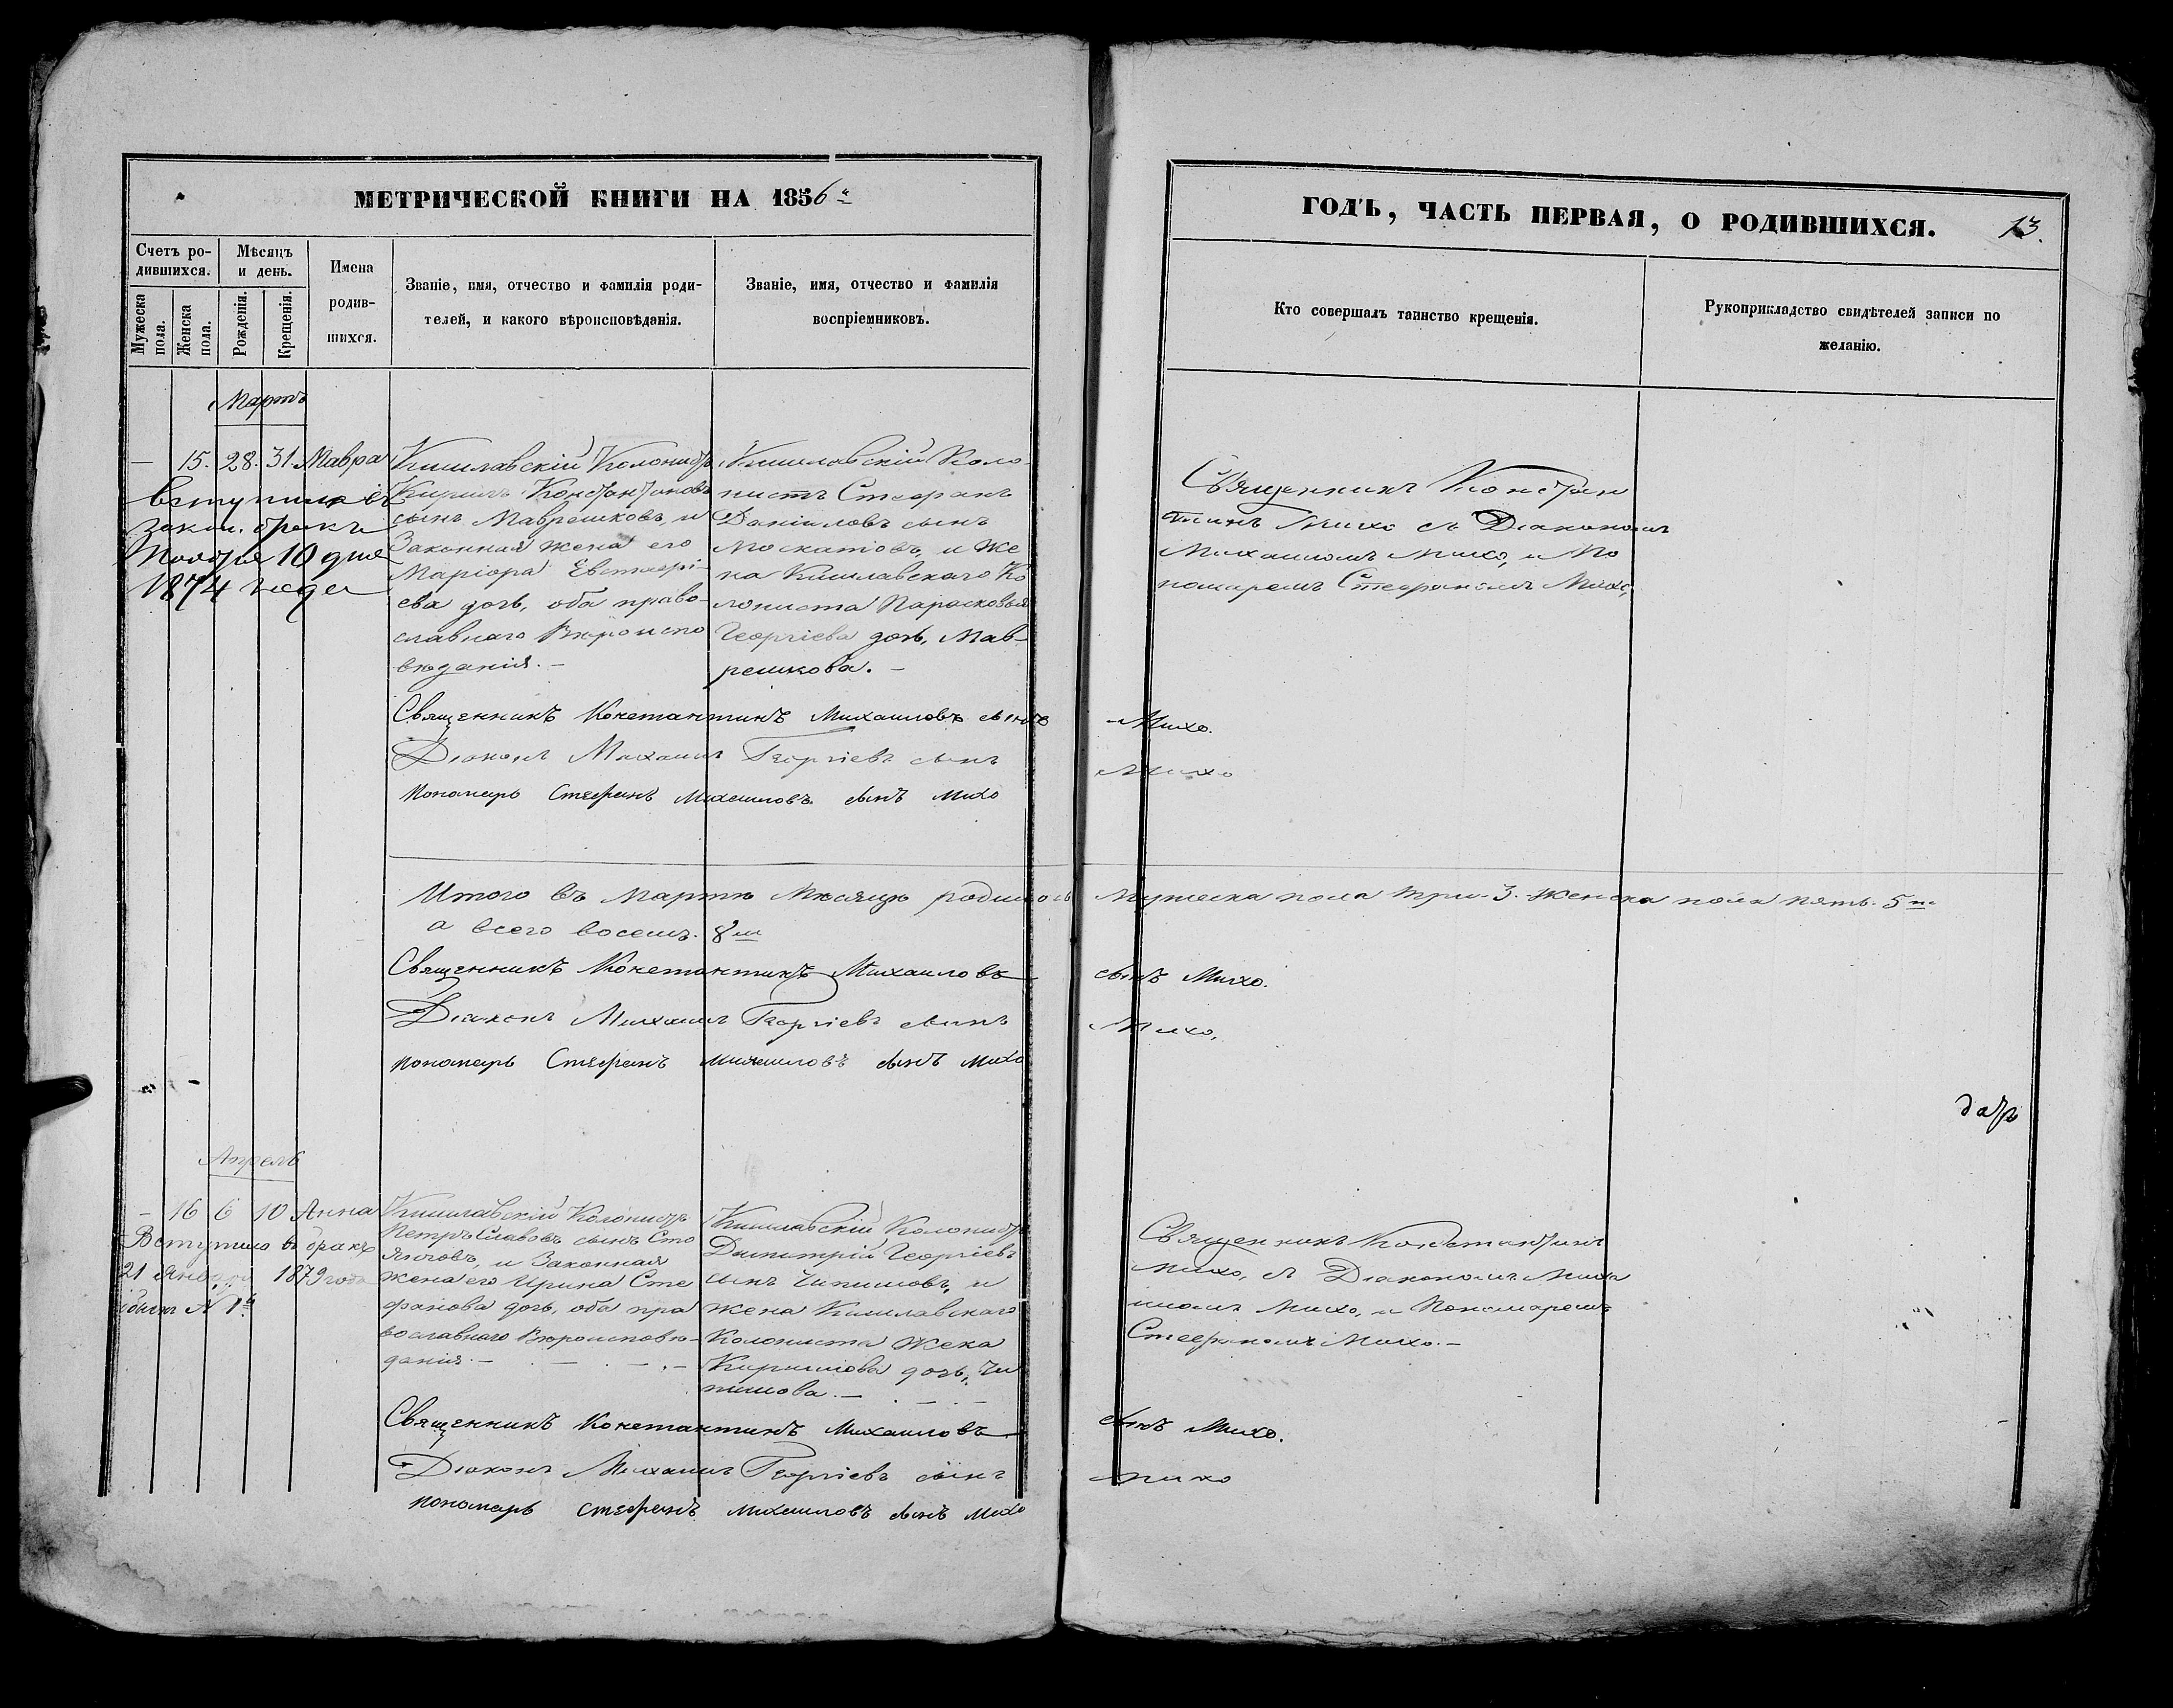 МЕТРИЧЕСКОЙ КНИГИ НА 1856й
Счетъ ро-
дившихся.
Мѣсяцъ
и день.
Мужеска
пола.
Женска
пола.
Рожденія.
Крещенія.
Имена
родив-
шихся.
Званіе, имя, отчество и фамилія роди-
телей, и какого вѣроисповѣданія.
Званіе, имя, отчество и фамилія
воспріемниковъ.
Мартъ
— 15. 28. 31. Мавра
Вступила въ
закон. бракъ
Ноября 10 дня
1874 года
Кишлавскій Колонистъ
Кирилъ Константиновъ
сынъ Маврешковъ, и
Законная жена его
Маріора Евстаѳрі-
ева дочь, оба право-
славнаго Вѣроиспо
вѣданія. —
Кишлавскій Коло-
нистъ Стефанъ
Даніиловъ сынъ
Москатовъ, и же
на Кишлавскаго Ко
лониста Парасковья
Георгіева дочь, Мав-
решкова. —
Священникъ Константинъ Михаиловъ сынъ
Діаконъ Михаилъ Георгіевъ сынъ
Пономарь Стефанъ Михаиловъ сынъ Михо
Итого въ Мартѣ Мѣсяцѣ родилось
а всего восемь. 8м
Священникъ Константинъ Михаиловъ
Діаконъ Михаилъ Георгіевъ сынъ
Пономарь Стефанъ Михаиловъ сынъ Михо
Апрель
— 16 6 10 Анна
Вступила въ бракъ
21 Января 1879 года
N 1й
Кишлавскій Колонистъ
Петръ Славовъ сынъ Сто
яновъ, и Законная
жена его Ирина Сте
фанова дочь, оба пра
вославнаго Вѣроисповѣ-
данія. —
Кишлавскій Колонистъ
Димитрій Георгіевъ
сынъ Чипиловъ, и
жена Кишлавскаго
Колониста Жека
Кирилова дочь, Чи
пилова. —
Священникъ Константинъ Михаиловъ
Діаконъ Михаилъ Георгіевъ сынъ
Пономарь Стефанъ Михаиловъ сынъ Михо
ГОДЪ, ЧАСТЬ ПЕРВАЯ, О РОДИВШИХСЯ. 13.
Кто совершалъ таинство крещенія.
Рукоприкладство свидѣтелей записи по
желанію.
Священникъ Констан
тинъ Михо съ Діакономъ
Михаиломъ Михо, и По
номаремъ Стефаномъ Михо,
Михо.
Михо
Мужеска пола три. 3. Женска пола пять. 5ть
сынъ Михо.
Михо,
Священникъ Константинъ
Михо, съ Діакономъ Миха
иломъ Михо, и Пономаремъ
Стефаномъ Михо. —
сынъ Михо.
Михо